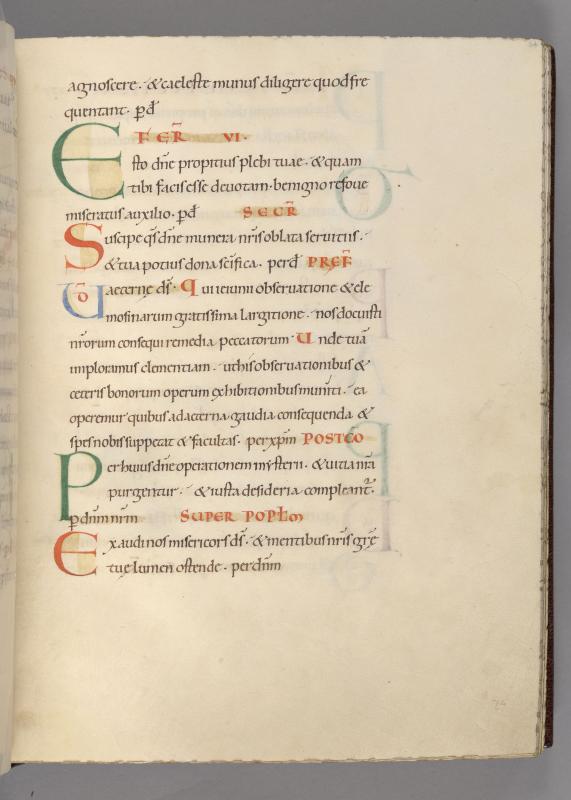 agnoscere · & caeleste munus diligere quod fre
quentant · p̄ d̄
FER̄ VI ·
Esto dn̄e propitius plebi tuae · & quam
tibi facis esse deuotam · benigno refoue
miseratus auxilio · p̄ d̄ SECR̄
Suscipe qs̄ dn̄e munera nr̄is oblata seruitiis ·
& tua potius dona sc̄ifica · per d̄ PREF̄
VD̄ aeterne ds̄ · Qui ieiunii obseruatione & ele
mosinarum gratissima largitione · nos docuisti
nr̄orum consequi remedia peccatorum · Unde tuā
imploramus clementiam · ut his obseruationibus &
ceteris bonorum operum exhibitionibus muniti · ea
operemur quibus ad aeterna gaudia consequenda &
spes nobis suppetat & facultas · per xp̄m POSTCO
Per huius dn̄e operationem mysterii · & uitia n̄ra
purgentur · & iusta desideria compleantr̄ ·
p̄ dn̄m nr̄m SUPER POPL̄m
Exaudi nos misericors ds̄ · & mentibus nr̄is gr̄ę
tuę lumen ostende · per dn̄m